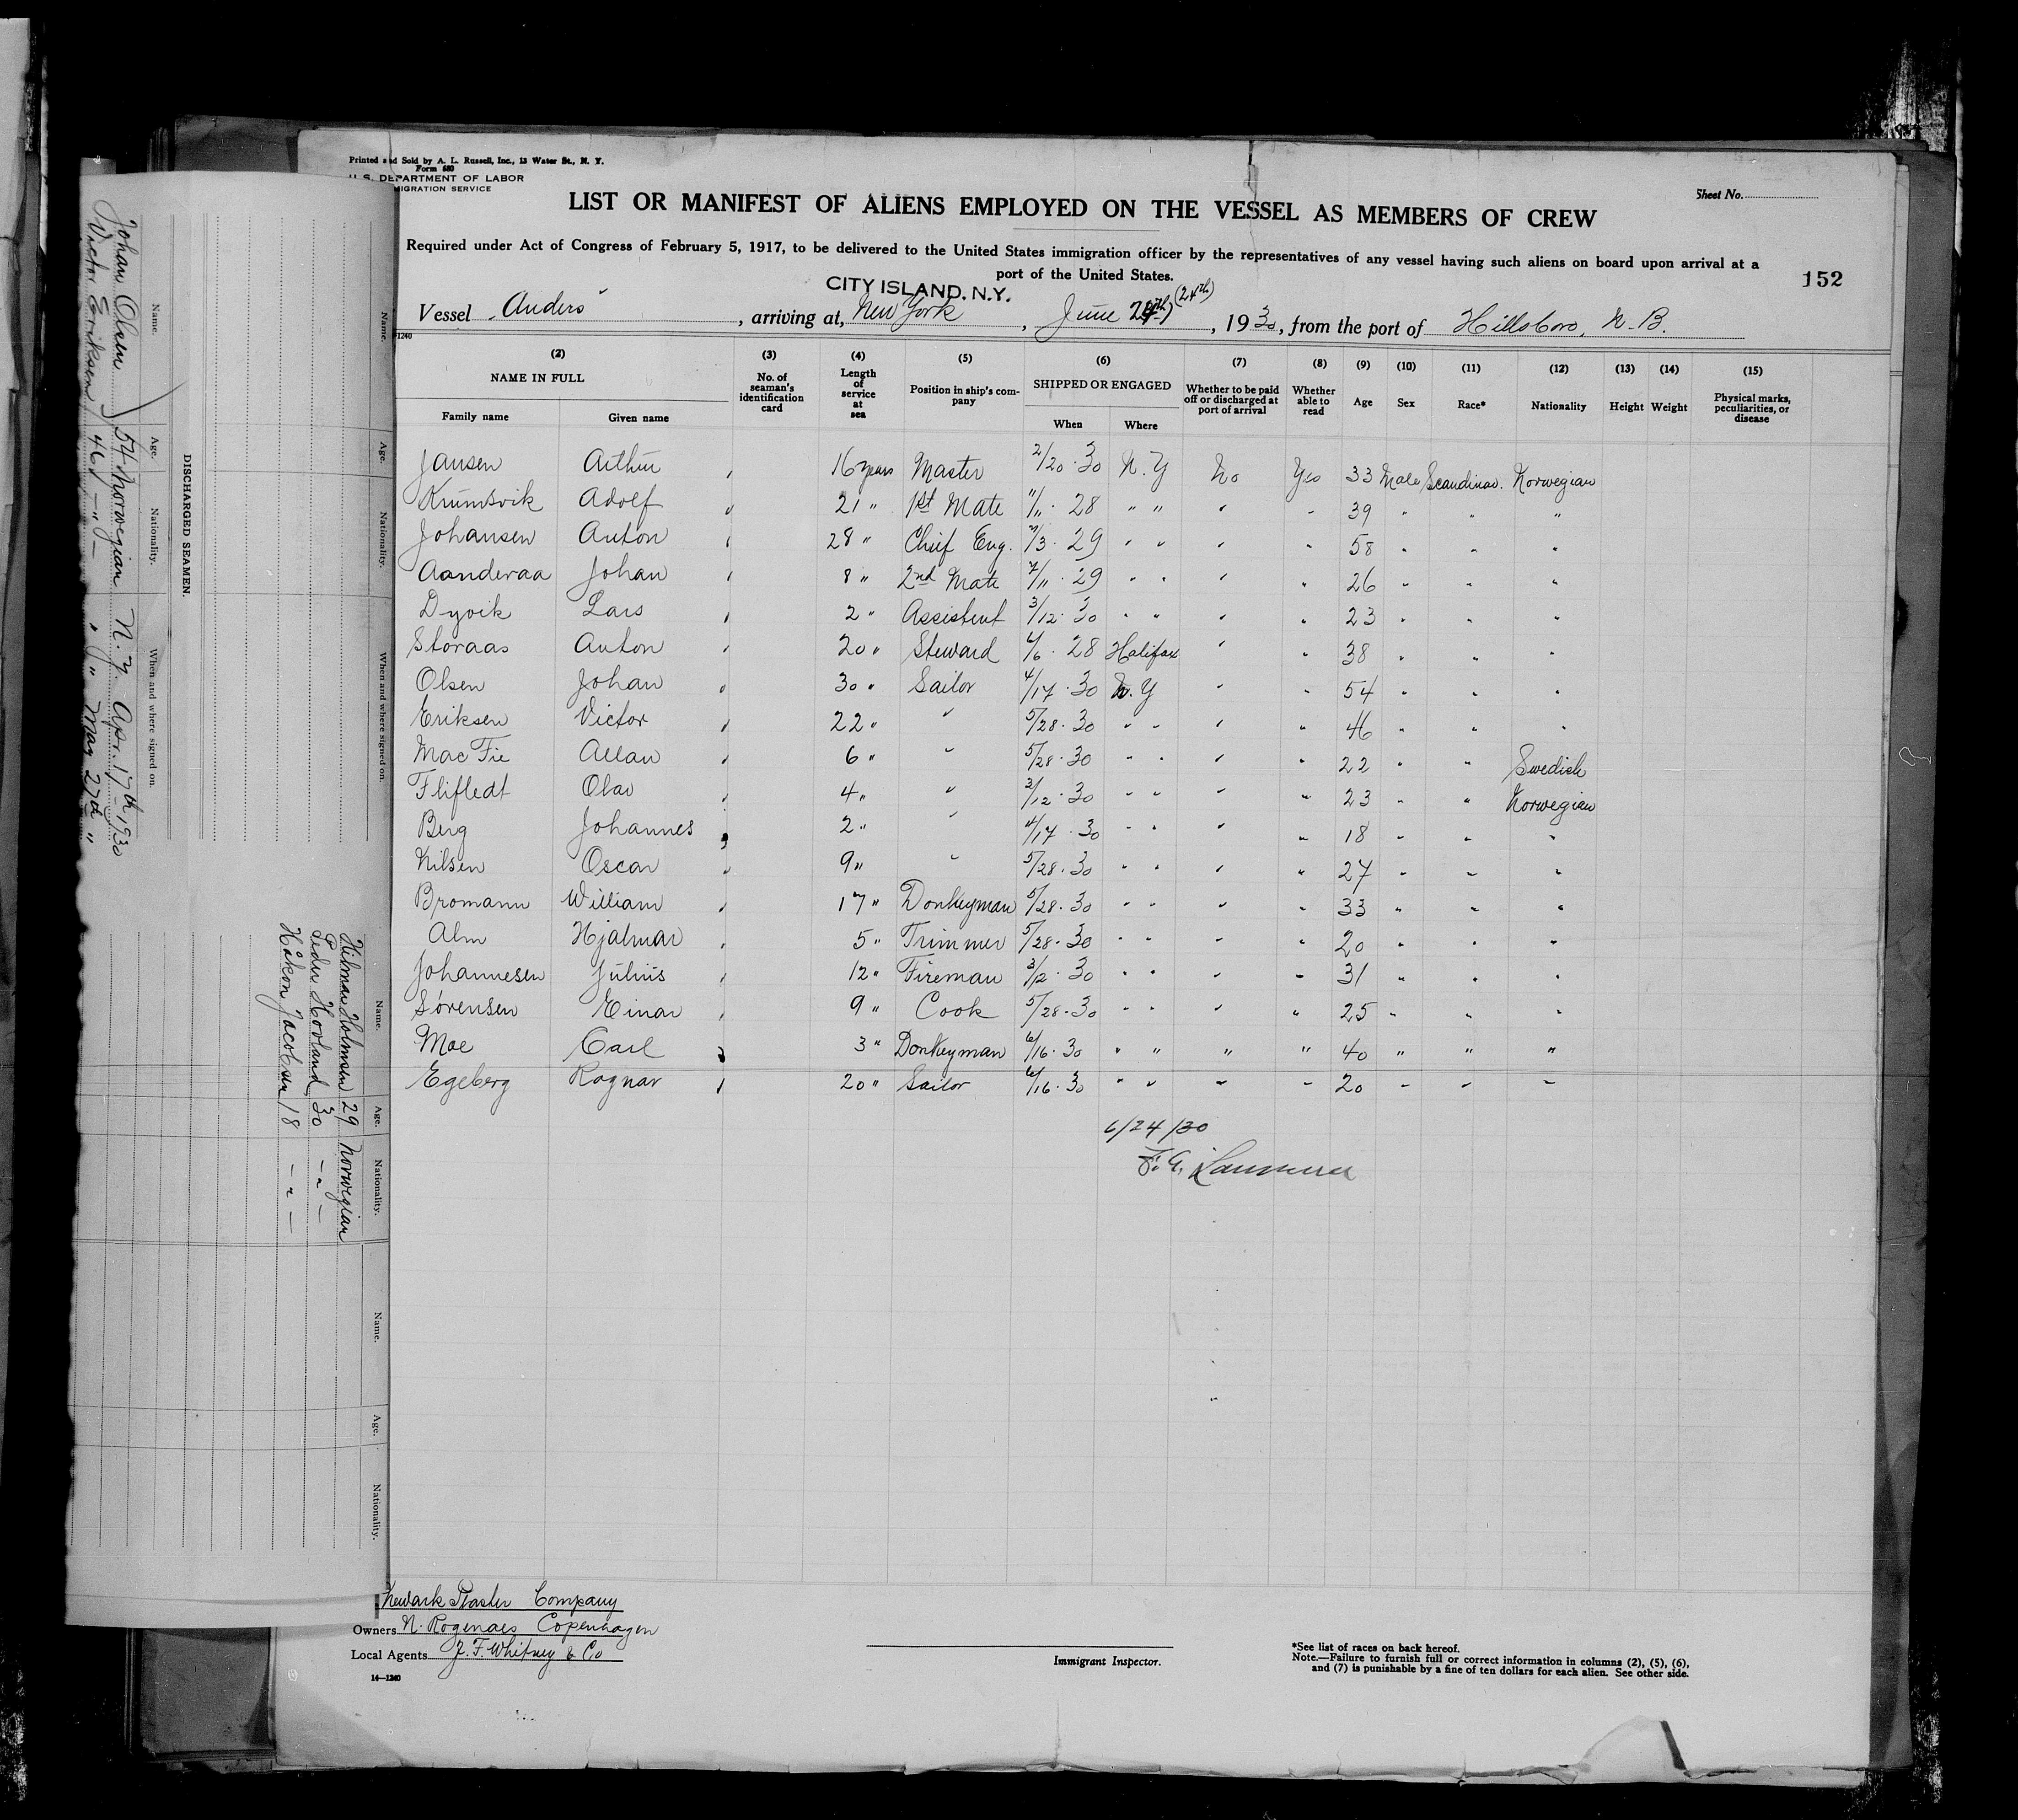 Printed and Sold by A. L. Russell, Inc., 13 Water St., N. Y.
Form 680
U. S. DEPARTMENT OF LABOR
MIGRATION SERVICE
Sheet No.
LIST OR MANIFEST OF ALIENS EMPLOYED ON THE VESSEL AS MEMBERS OF CREW
Required under Act of Congress of February 5, 1917, to be delivered to the United States immigration officer by the representatives of any vessel having such aliens on board upon arrival at a
port of the United States.
152
CITY ISLAND, N.Y.
Vessel Anders, arriving at, New York, June (24th), 1930, from the port of Hillsboro, N.B.
1240
(2) (3) (4) (5) (6) (7) (8) (9) (10) (11) (12) (13) (14) (15)
NAME IN FULL No. of seaman's identification card Length of service at sea Position in ship's company SHIPPED OR ENGAGED Whether to be paid off or discharged at port of arrival Whether able to read Age Sex Race* Nationality Height Weight Physical marks, peculiarities, or disease
Family name Given name When Where
Jansen Arthur 16 years Master 2/20.30 N.Y No Yes 33 Male Scandinav. Norwegian
Krumsvik Adolf 21 " 1st Mate 11/11.28 " " " " 39 " " "
Johansen Anton 28 " Chief Eng. 7/3.29 " " " " 58 " " "
Aanderaa Johan 8 " 2nd Mate 7/11.29 " " " " 26 " " "
Dyvik Lars 2 " Assistent 3/12.30 " " " " 23 " " "
Storaas Anton 20 " Steward 6/6.28 Halifax " " 38 " " "
Olsen Johan 30 " Sailor 4/17.30 N.Y " " 54 " " "
Eriksen Victor 22 " " 5/28.30 " " " " 46 " " "
Mac Fie Allan 6 " " 5/28.30 " " " " 22 " " Swedish
Flifledt Olav 4 " " 3/12.30 " " " " 23 " " Norwegian
Berg Johannes 2 " " 4/17.30 " " " " 18 " " "
Nilsen Oscar 9 " " 5/28.30 " " " " 27 " " "
Bromann William 17 " Donkeyman 5/28.30 " " " " 33 " " "
Alm Hjalmar 5 " Trimmer 5/28.30 " " " " 20 " " "
Johannesen Julius 12 " Fireman 3/12.30 " " " " 31 " " "
Sørensen Einar 9 " Cook 5/28.30 " " " " 25 " " "
Moe Carl 3 " Donkeyman 6/16.30 " " " " 40 " " "
Egeberg Ragnar 20 " Sailor 6/16.30 " " " " 20 " " "
6/24/30
F. G.
Newark Plaster Company
Owners N. Rogenaes Copenhagen
Local Agents J. F. Whitney & Co
14—1240
Immigrant Inspector.
*See list of races on back hereof.
Note.—Failure to furnish full or correct information in columns (2), (5), (6),
and (7) is punishable by a fine of ten dollars for each alien. See other side.
Name. Age. Nationality. When and where signed on.
DISCHARGED SEAMEN.
Name. Age. Nationality. When and where signed on.
Johan Olsen 54 Norwegian N.Y. Apr. 17th 1930
Victor Eriksen 46 — " — " " May 27th "
Name. Age. Nationality.
Hilmar Holmsen 29 Norwegian
Peder Hovland 30 — " —
Håkon Jacobsen 18 — " —
Name. Age. Nationality.